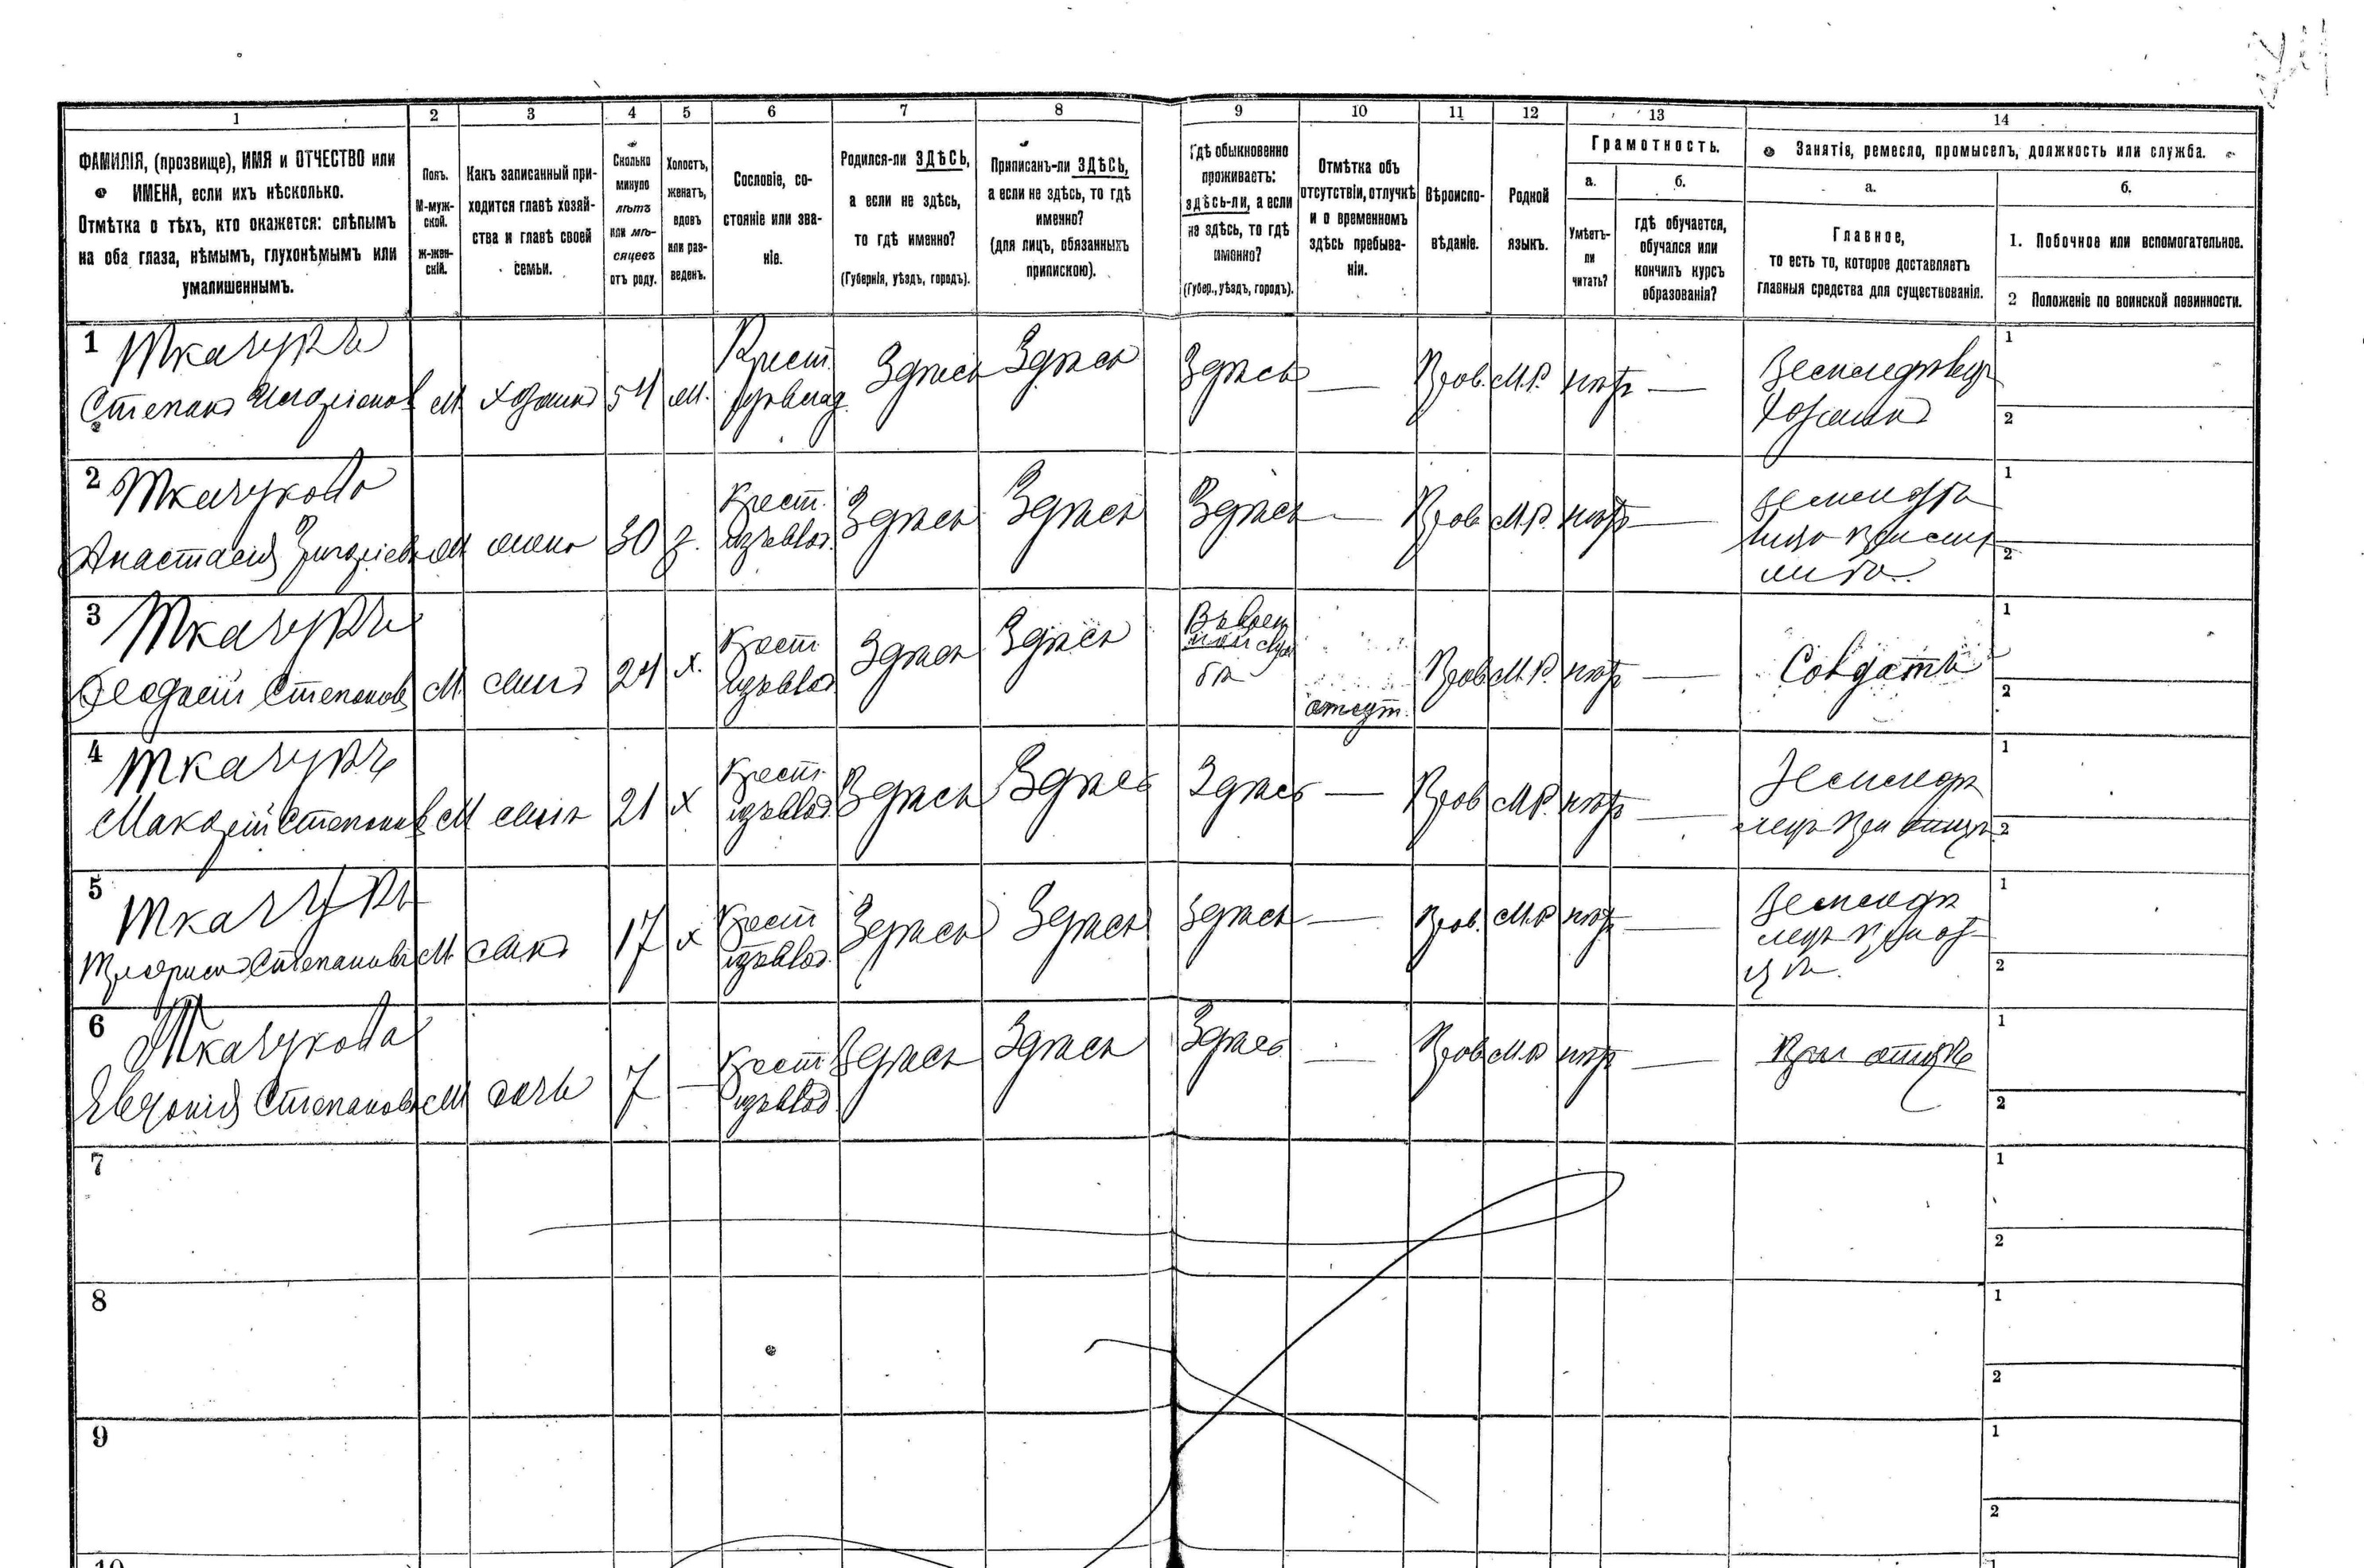 1 2 3 4 5 6 7 8 9 10 11 12 13 14
ФАМИЛІЯ, (прозвище), ИМЯ и ОТЧЕСТВО или
ИМЕНА, если ихъ нѣсколько.
Отмѣтка о тѣхъ, кто окажется: слѣпымъ
на оба глаза, нѣмымъ, глухонѣмымъ или
умалишеннымъ.
Полъ.
М-муж-
ской.
Ж-жен-
скій.
Какъ записанный при-
ходится главѣ хозяй-
ства и главѣ своей
семьи.
Сколько
минуло
лѣтъ
или мѣ-
сяцевъ
отъ роду.
Холостъ,
женатъ,
вдовъ
или раз-
веденъ.
Сословіе, со-
стояніе или зва-
ніе.
Родился-ли ЗДѢСЬ,
а если не здѣсь,
то гдѣ именно?
(Губернія, уѣздъ, городъ).
Приписанъ-ли ЗДѢСЬ,
а если не здѣсь, то гдѣ
именно?
(для лицъ, обязанныхъ
припискою).
Гдѣ обыкновенно
проживаетъ:
здѣсь-ли, а если
не здѣсь, то гдѣ
именно?
(Губер., уѣздъ, городъ).
Отмѣтка объ
отсутствіи, отлучкѣ
и о временномъ
здѣсь пребыва-
ніи.
Вѣроиспо-
вѣданіе.
Родной
языкъ.
Грамотность.
а.
Умѣетъ-
ли
читать?
б.
гдѣ обучается,
обучался или
кончилъ курсъ
образованія?
Занятія, ремесло, промыселъ, должность или служба.
а.
Главное,
то есть то, которое доставляетъ
главныя средства для существованія.
б.
1. Побочное или вспомогательное.
2 Положеніе по воинской повинности.
1 Ткачукъ
Степанъ М хозяинъ 54 Крест. Здѣсь Здѣсь Здѣсь — Прав. М.Р. нѣтъ —
Хозяинъ
1
2
2 Ткачукова
Анастасія М жена 30 з. Крест. Здѣсь Здѣсь Здѣсь — Прав М.Р. нѣтъ —
1
2
3 Ткачукъ
Степановъ М сынъ 24 х. Крест Здѣсь Здѣсь Въ воен
ной служ
бѣ
отсут. Прав М.Р. нѣтъ — Солдатъ
1
2
4 Ткачукъ
Макарій Степановъ М сынъ 21 х Крест Здѣсь Здѣсь Здѣсь — Прав М.Р. нѣтъ —
Земледѣ
лецъ при отцѣ
1
2
5 Ткачукъ
Степановъ М сынъ 17 х Крест Здѣсь Здѣсь Здѣсь — Прав. М.Р нѣтъ —
Земледѣ
лецъ при от
цѣ
1
2
6 Ткачукова
Степанова М дочь 7 — Крест Здѣсь Здѣсь Здѣсь — Прав М.Р нѣтъ — При отцѣ
1
2
7
1
2
8
1
2
9
1
2
10
1